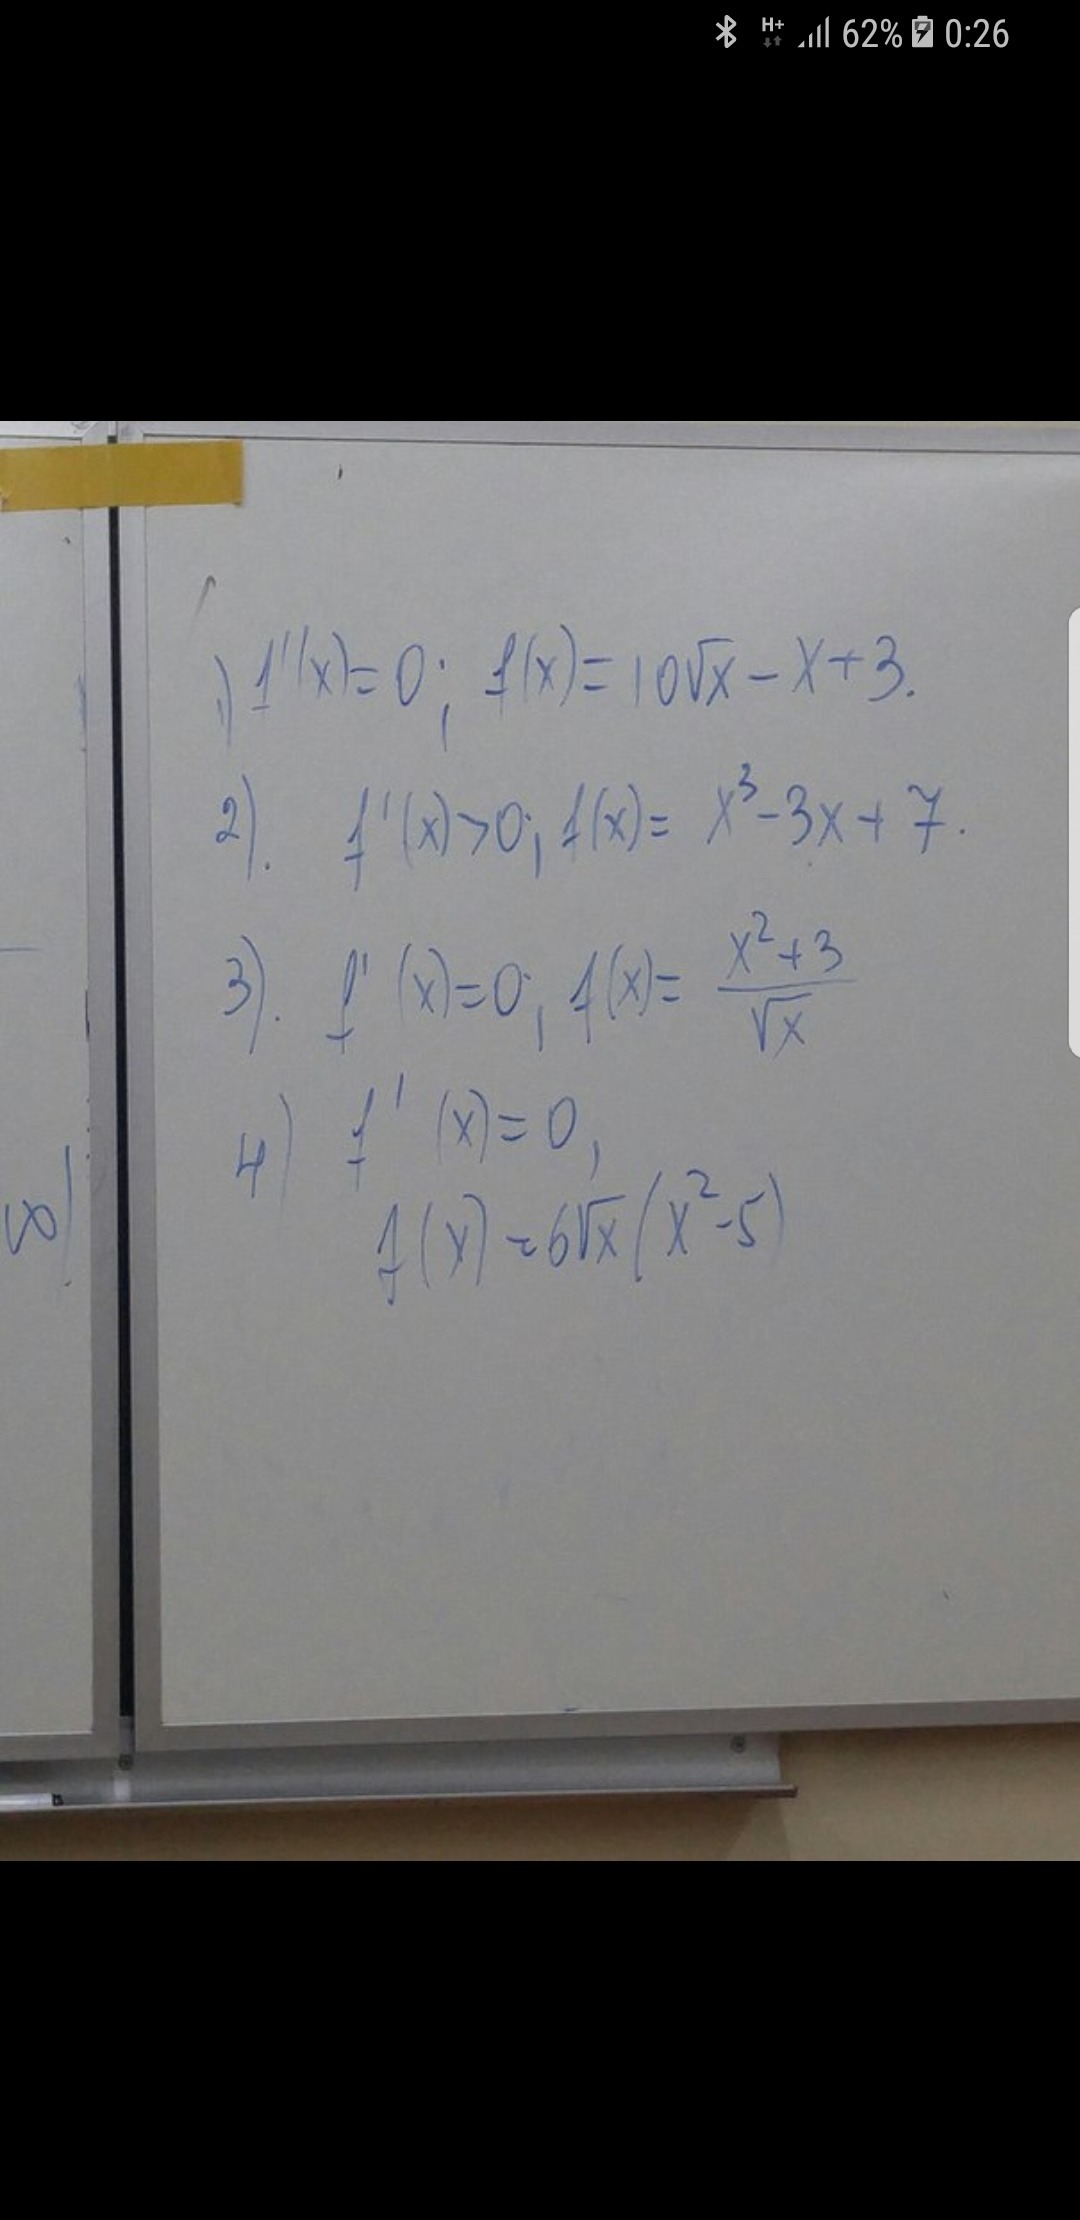 62% 0:26
1) f'(x)=0; f(x)=10√x-x+3.
2). f'(x)>0; f(x)= x³-3x+7.
3). f'(x)=0; f(x)= x²+3/√x
4) f'(x)=0,
f(x)=6√x(x²-5)
∞)